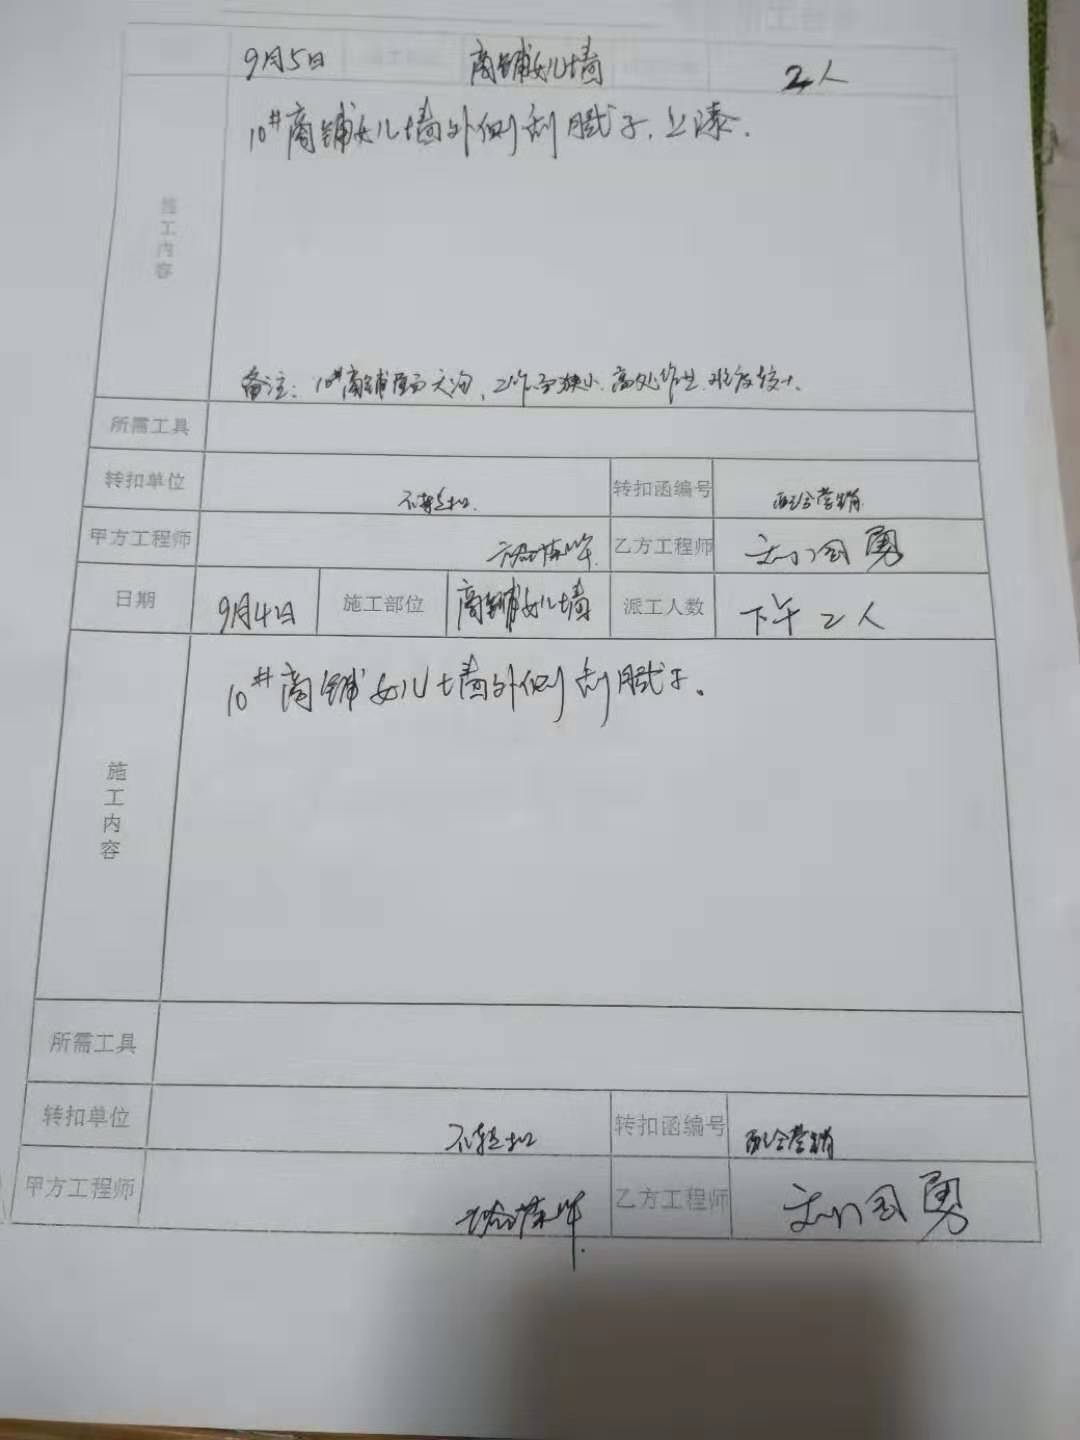 9月5日 商铺女儿墙 2人
10#商铺女儿墙外侧刮腻子，上漆.
施工内容
备注：10#商铺屋面天沟，工作面狭小，高处作业，难度较大.
所需工具
转扣单位 不转扣. 转扣函编号 配合营销
甲方工程师 乙方工程师 刘国勇
日期 9月4日 施工部位 商铺女儿墙 派工人数 下午2人
10#商铺女儿墙外侧刮腻子.
施工内容
所需工具
转扣单位 不转扣 转扣函编号 配合营销
甲方工程师 乙方工程师 刘国勇